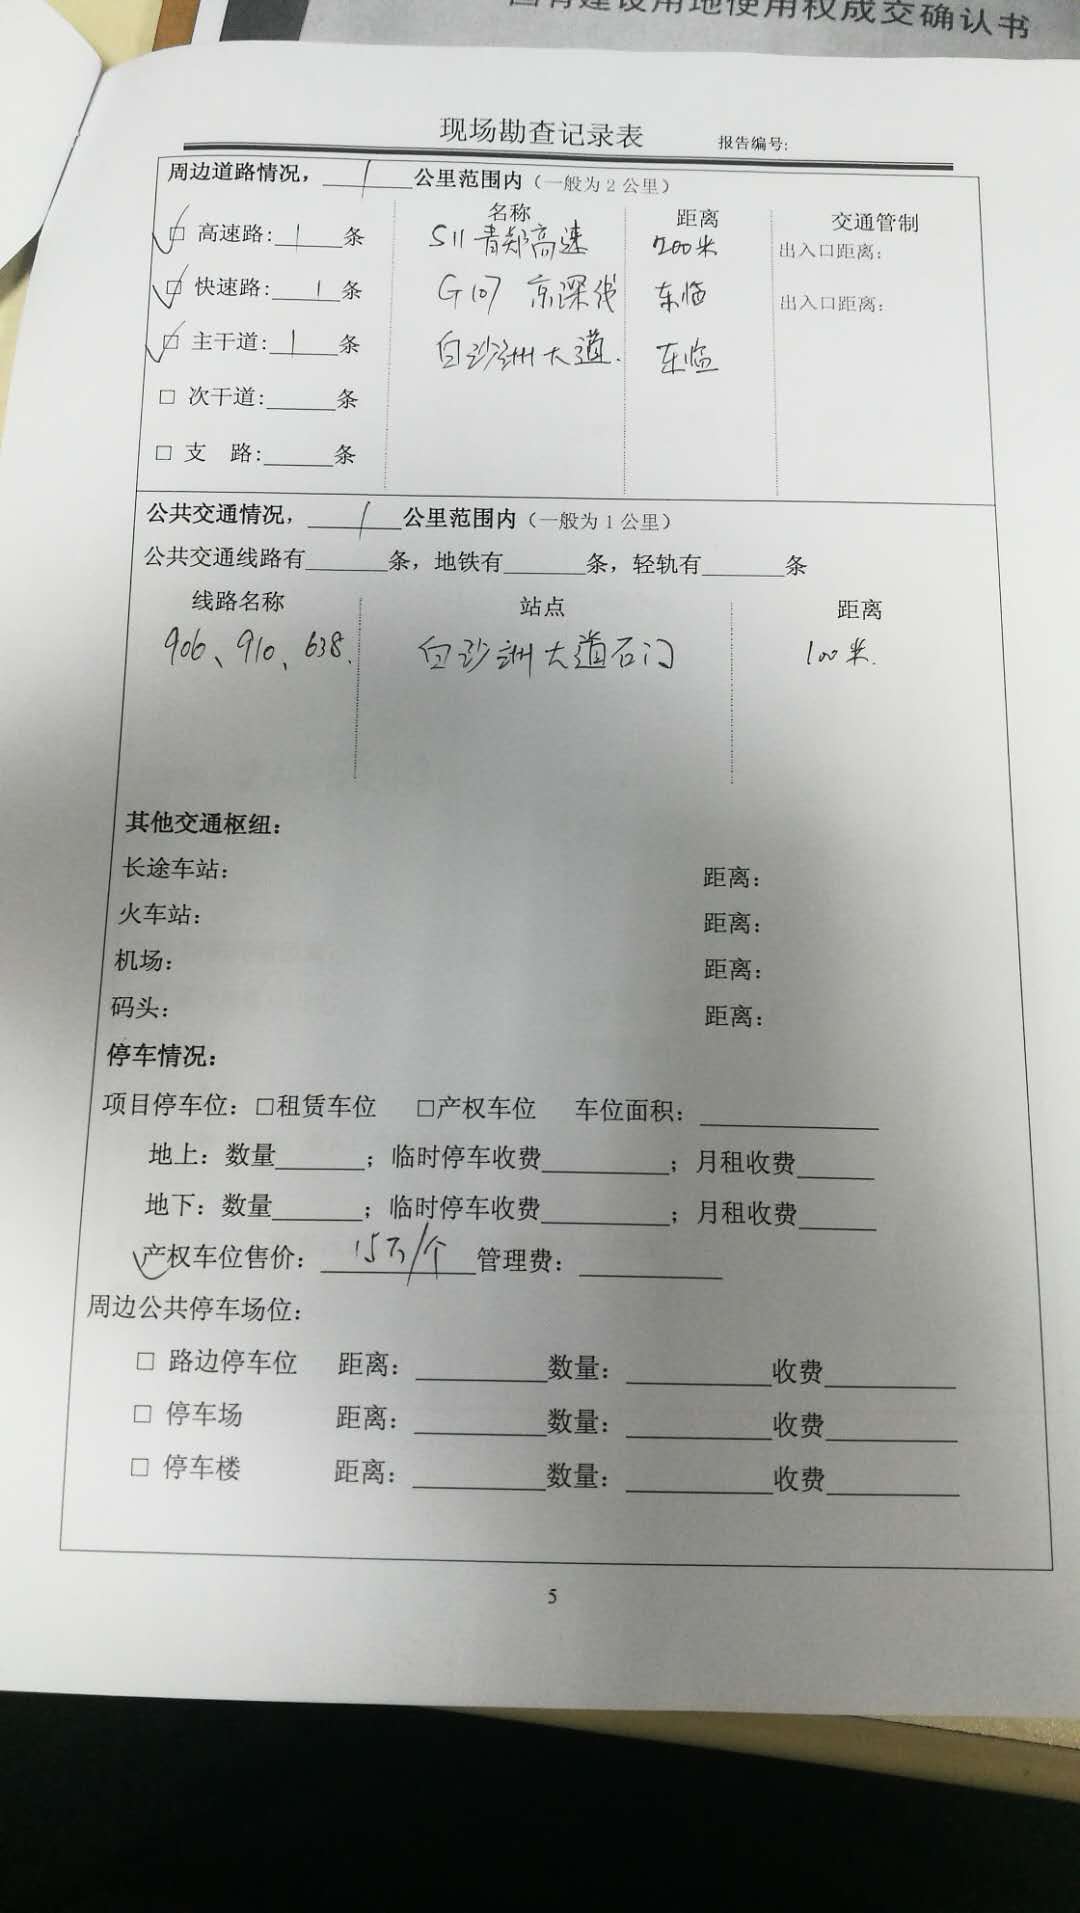 国有建设用地使用权成交确认书
现场勘查记录表 报告编号:
周边道路情况，1公里范围内（一般为2公里）
名称 距离 交通管制
□ 高速路:1条 S11青郑高速 700米 出入口距离:
□ 快速路:1条 G107 京深线 东临 出入口距离:
□ 主干道:1条 白沙洲大道. 东临
□ 次干道:______条
□ 支 路:______条
公共交通情况，1公里范围内（一般为1公里）
公共交通线路有______条，地铁有______条，轻轨有______条
线路名称 站点 距离
906、910、638. 白沙洲大道石门 100米.
其他交通枢纽:
长途车站: 距离:
火车站: 距离:
机场: 距离:
码头: 距离:
停车情况:
项目停车位: □租赁车位 □产权车位 车位面积:______
地上: 数量______; 临时停车收费______; 月租收费______
地下: 数量______; 临时停车收费______; 月租收费______
产权车位售价: 15万/个 管理费:______
周边公共停车场位:
□ 路边停车位 距离:______数量:______收费______
□ 停车场 距离:______数量:______收费______
□ 停车楼 距离:______数量:______收费______
5